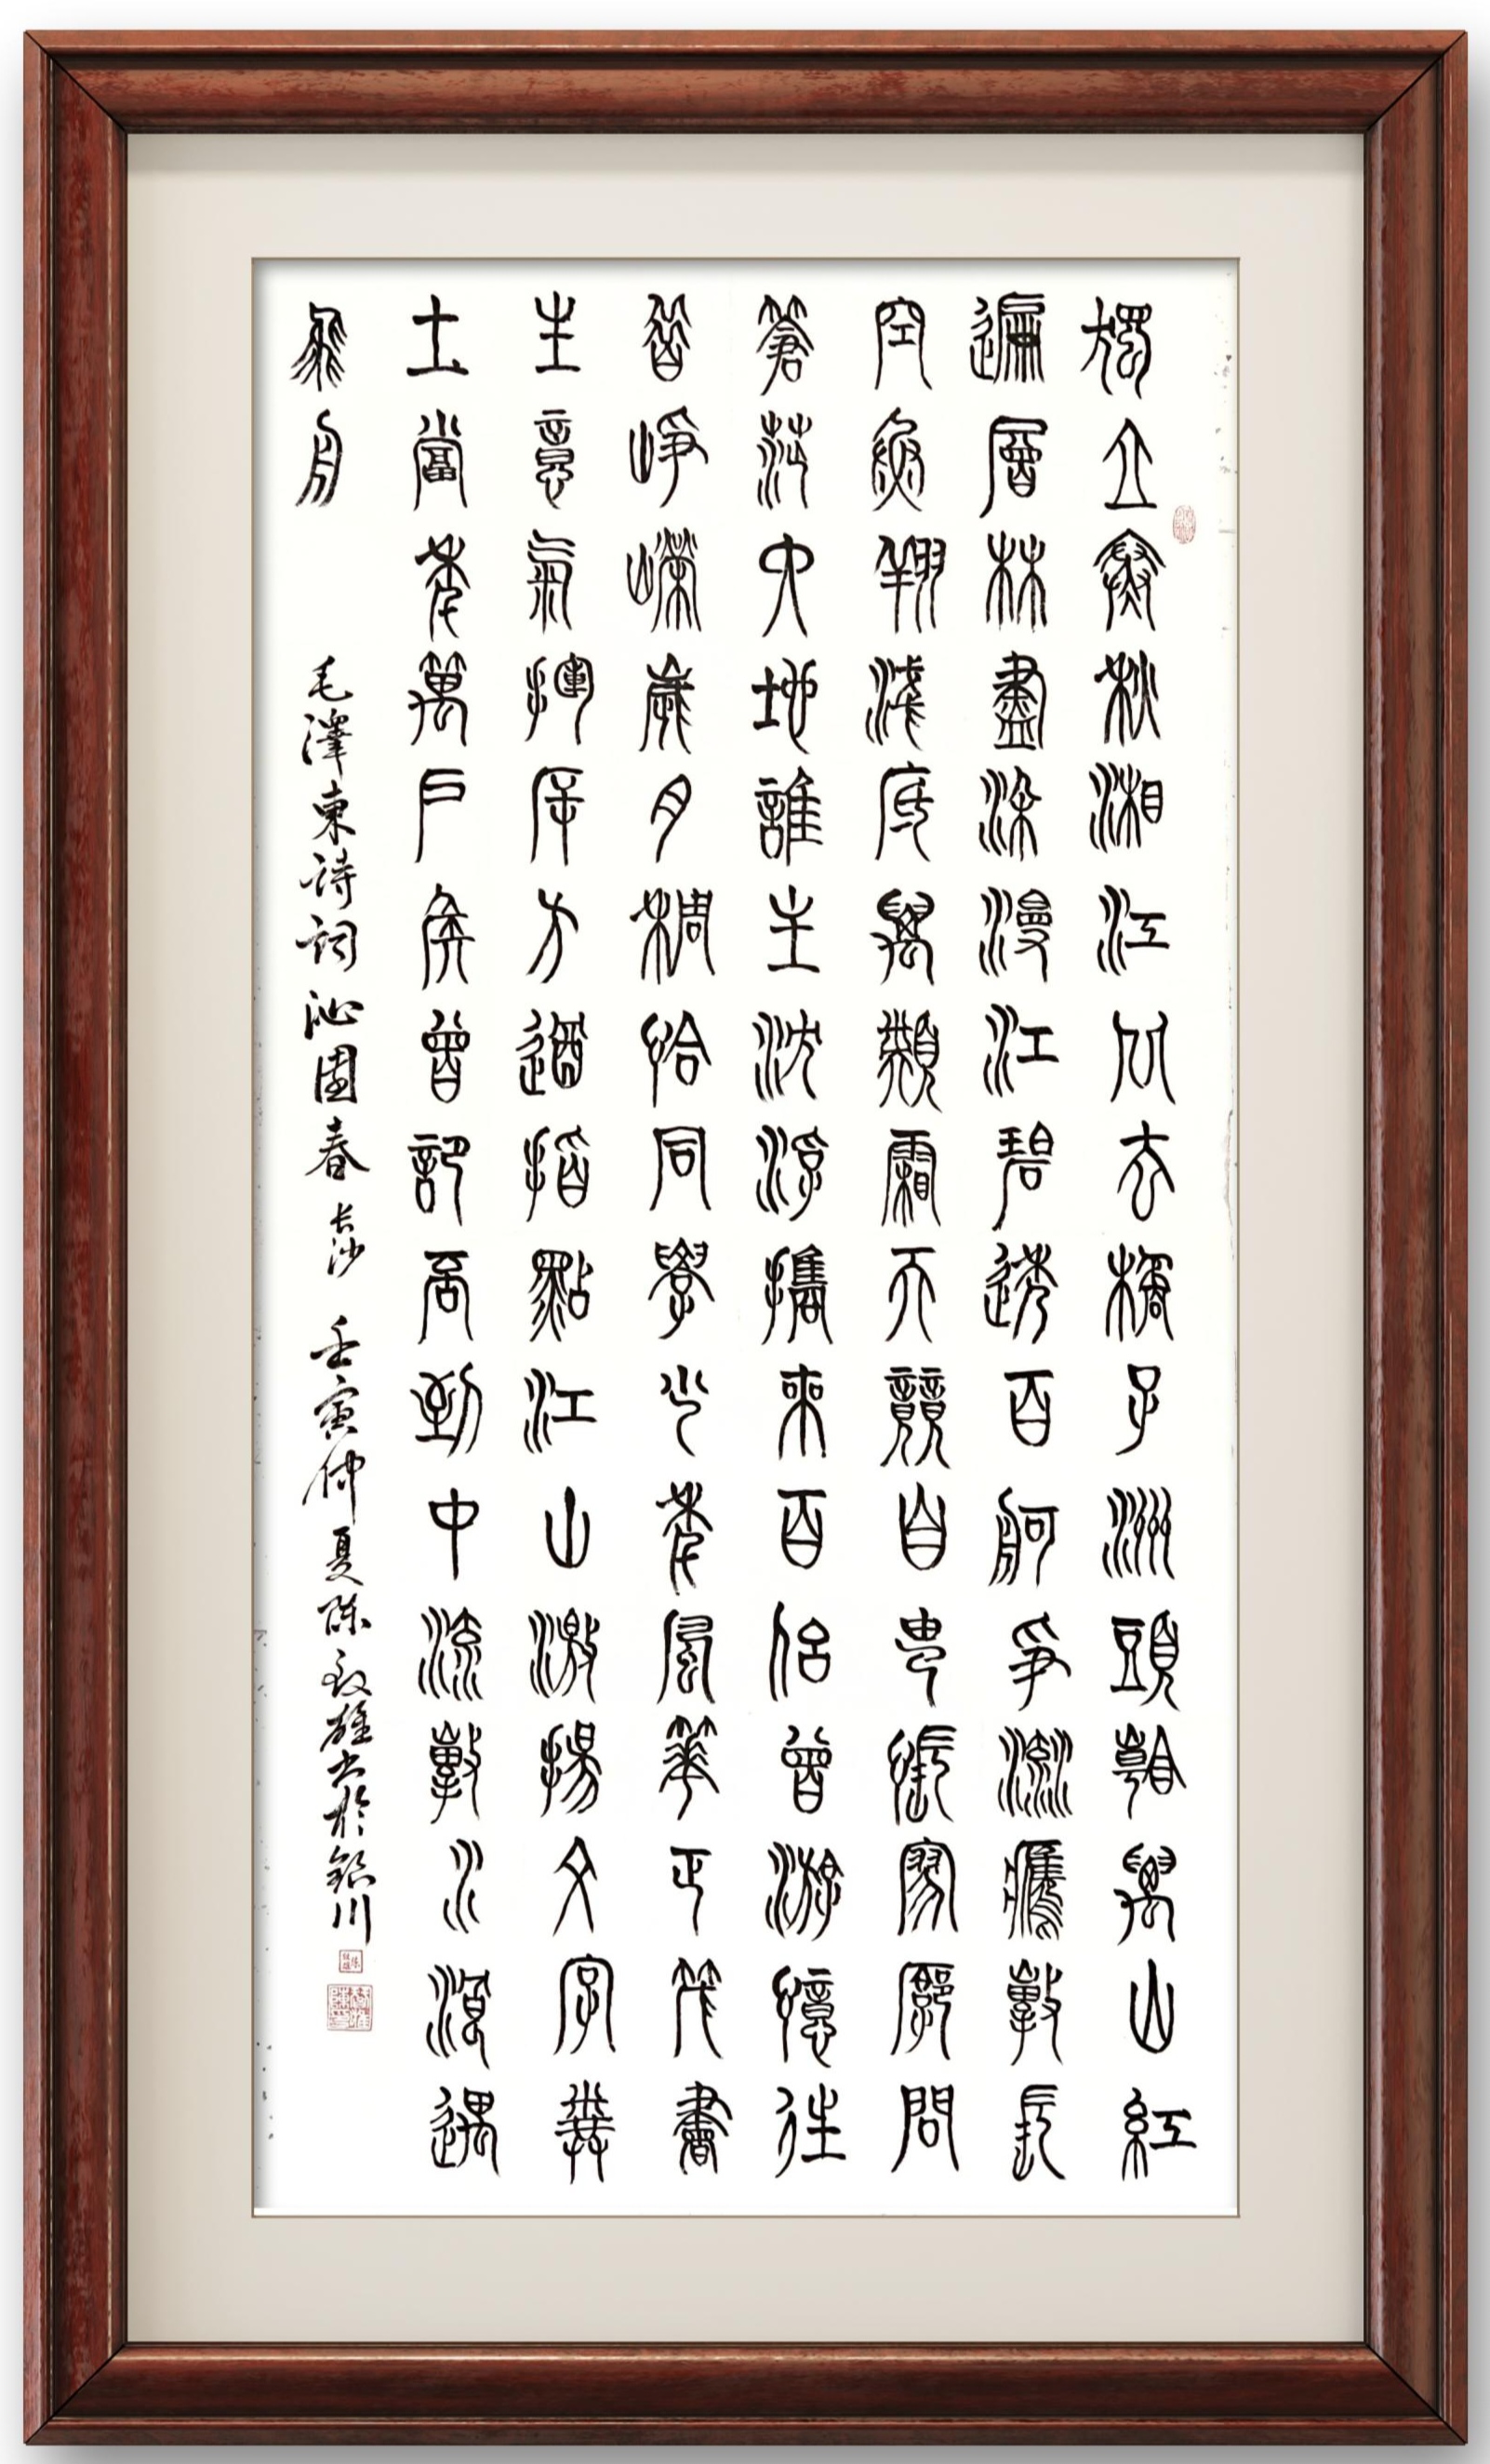 獨立寒秋湘江北去橘子洲頭看萬山紅
遍層林盡染漫江碧透百舸爭流鷹擊長
空魚翔淺底萬類霜天競自由悵寥廓問
蒼茫大地誰主沈浮攜來百侶曾游憶往
昔崢嶸歲月稠恰同學少年風華正茂書
生意氣揮斥方遒指點江山激揚文字糞
土當年萬戶侯曾記否到中流擊水浪遏
飛舟
毛澤東詩詞沁園春长沙 壬寅仲夏陈雄书於銀川